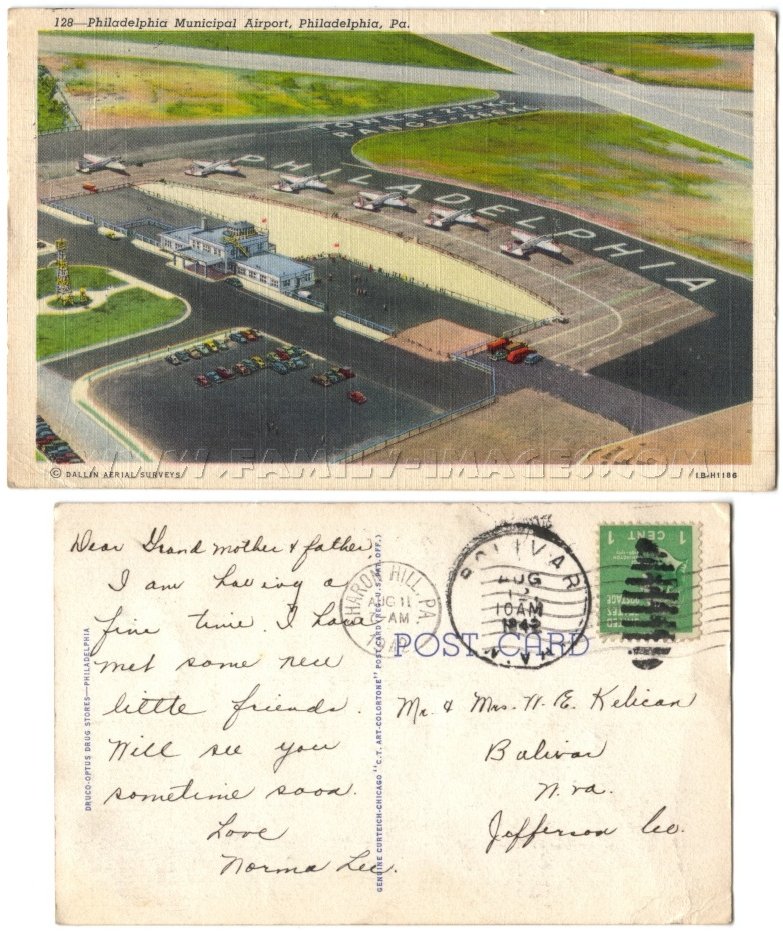 128—Philadelphia Municipal Airport, Philadelphia, Pa.
PHILADELPHIA
© DALLIN AERIAL SURVEYS
1B-H1186
WWW.FAMILY-IMAGES.COM
Dear Grand mother & father,
I am having a
fine time. I have
met some new
little friends.
Will see you
sometime soon.
Love
Norma Lee.
SHARON HILL, PA.
AUG 11
AM
BOLIVAR
AUG
12
10 AM
1942
W.VA.
1 CENT 1
POST CARD
Mr. & Mrs. W. E. Kelican
Bolivar
W. Va.
Jefferson Co.
DRUCO-OPTUS DRUG STORES—PHILADELPHIA
GENUINE CURTEICH-CHICAGO "C.T. ART-COLORTONE" POST CARD (REG. U.S. PAT. OFF.)